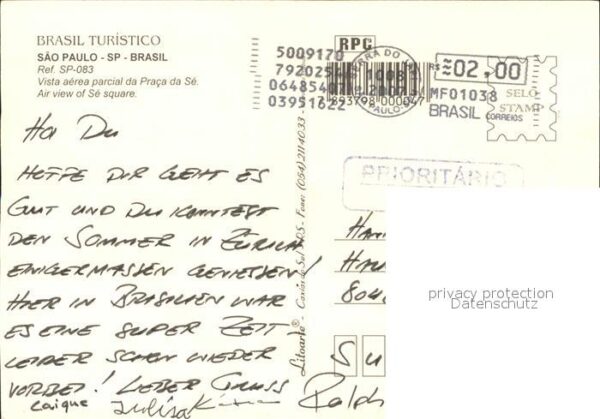 BRASIL TURÍSTICO
SÃO PAULO - SP - BRASIL
Ref. SP-083
Vista aérea parcial da Praça da Sé.
Air view of Sé square.
Ha Du
HOFFE DIR GEHT ES
GUT UND DU KONNTEST
DEN SOMMER IN ZÜRICH
EINIGERMASSEN GENIESSEN!
HIER IN BRASILIEN WAR
ES EINE SUPER ZEIT -
LEIDER SCHON WIEDER
VORBEI! LIEBER GRUSS
Ralph
Litoarte® - Caxias do Sul - RS - Fone: (054) 2114033
RPC
5009170
7920254
0648540
03951622
7 893798 000047
1008
2007
R$
02,00
MF01038
BRASIL
SELO
STAMP
CORREIOS
PRIORITÁRIO
HAN
HAL
804
SU
privacy protection
Datenschutz